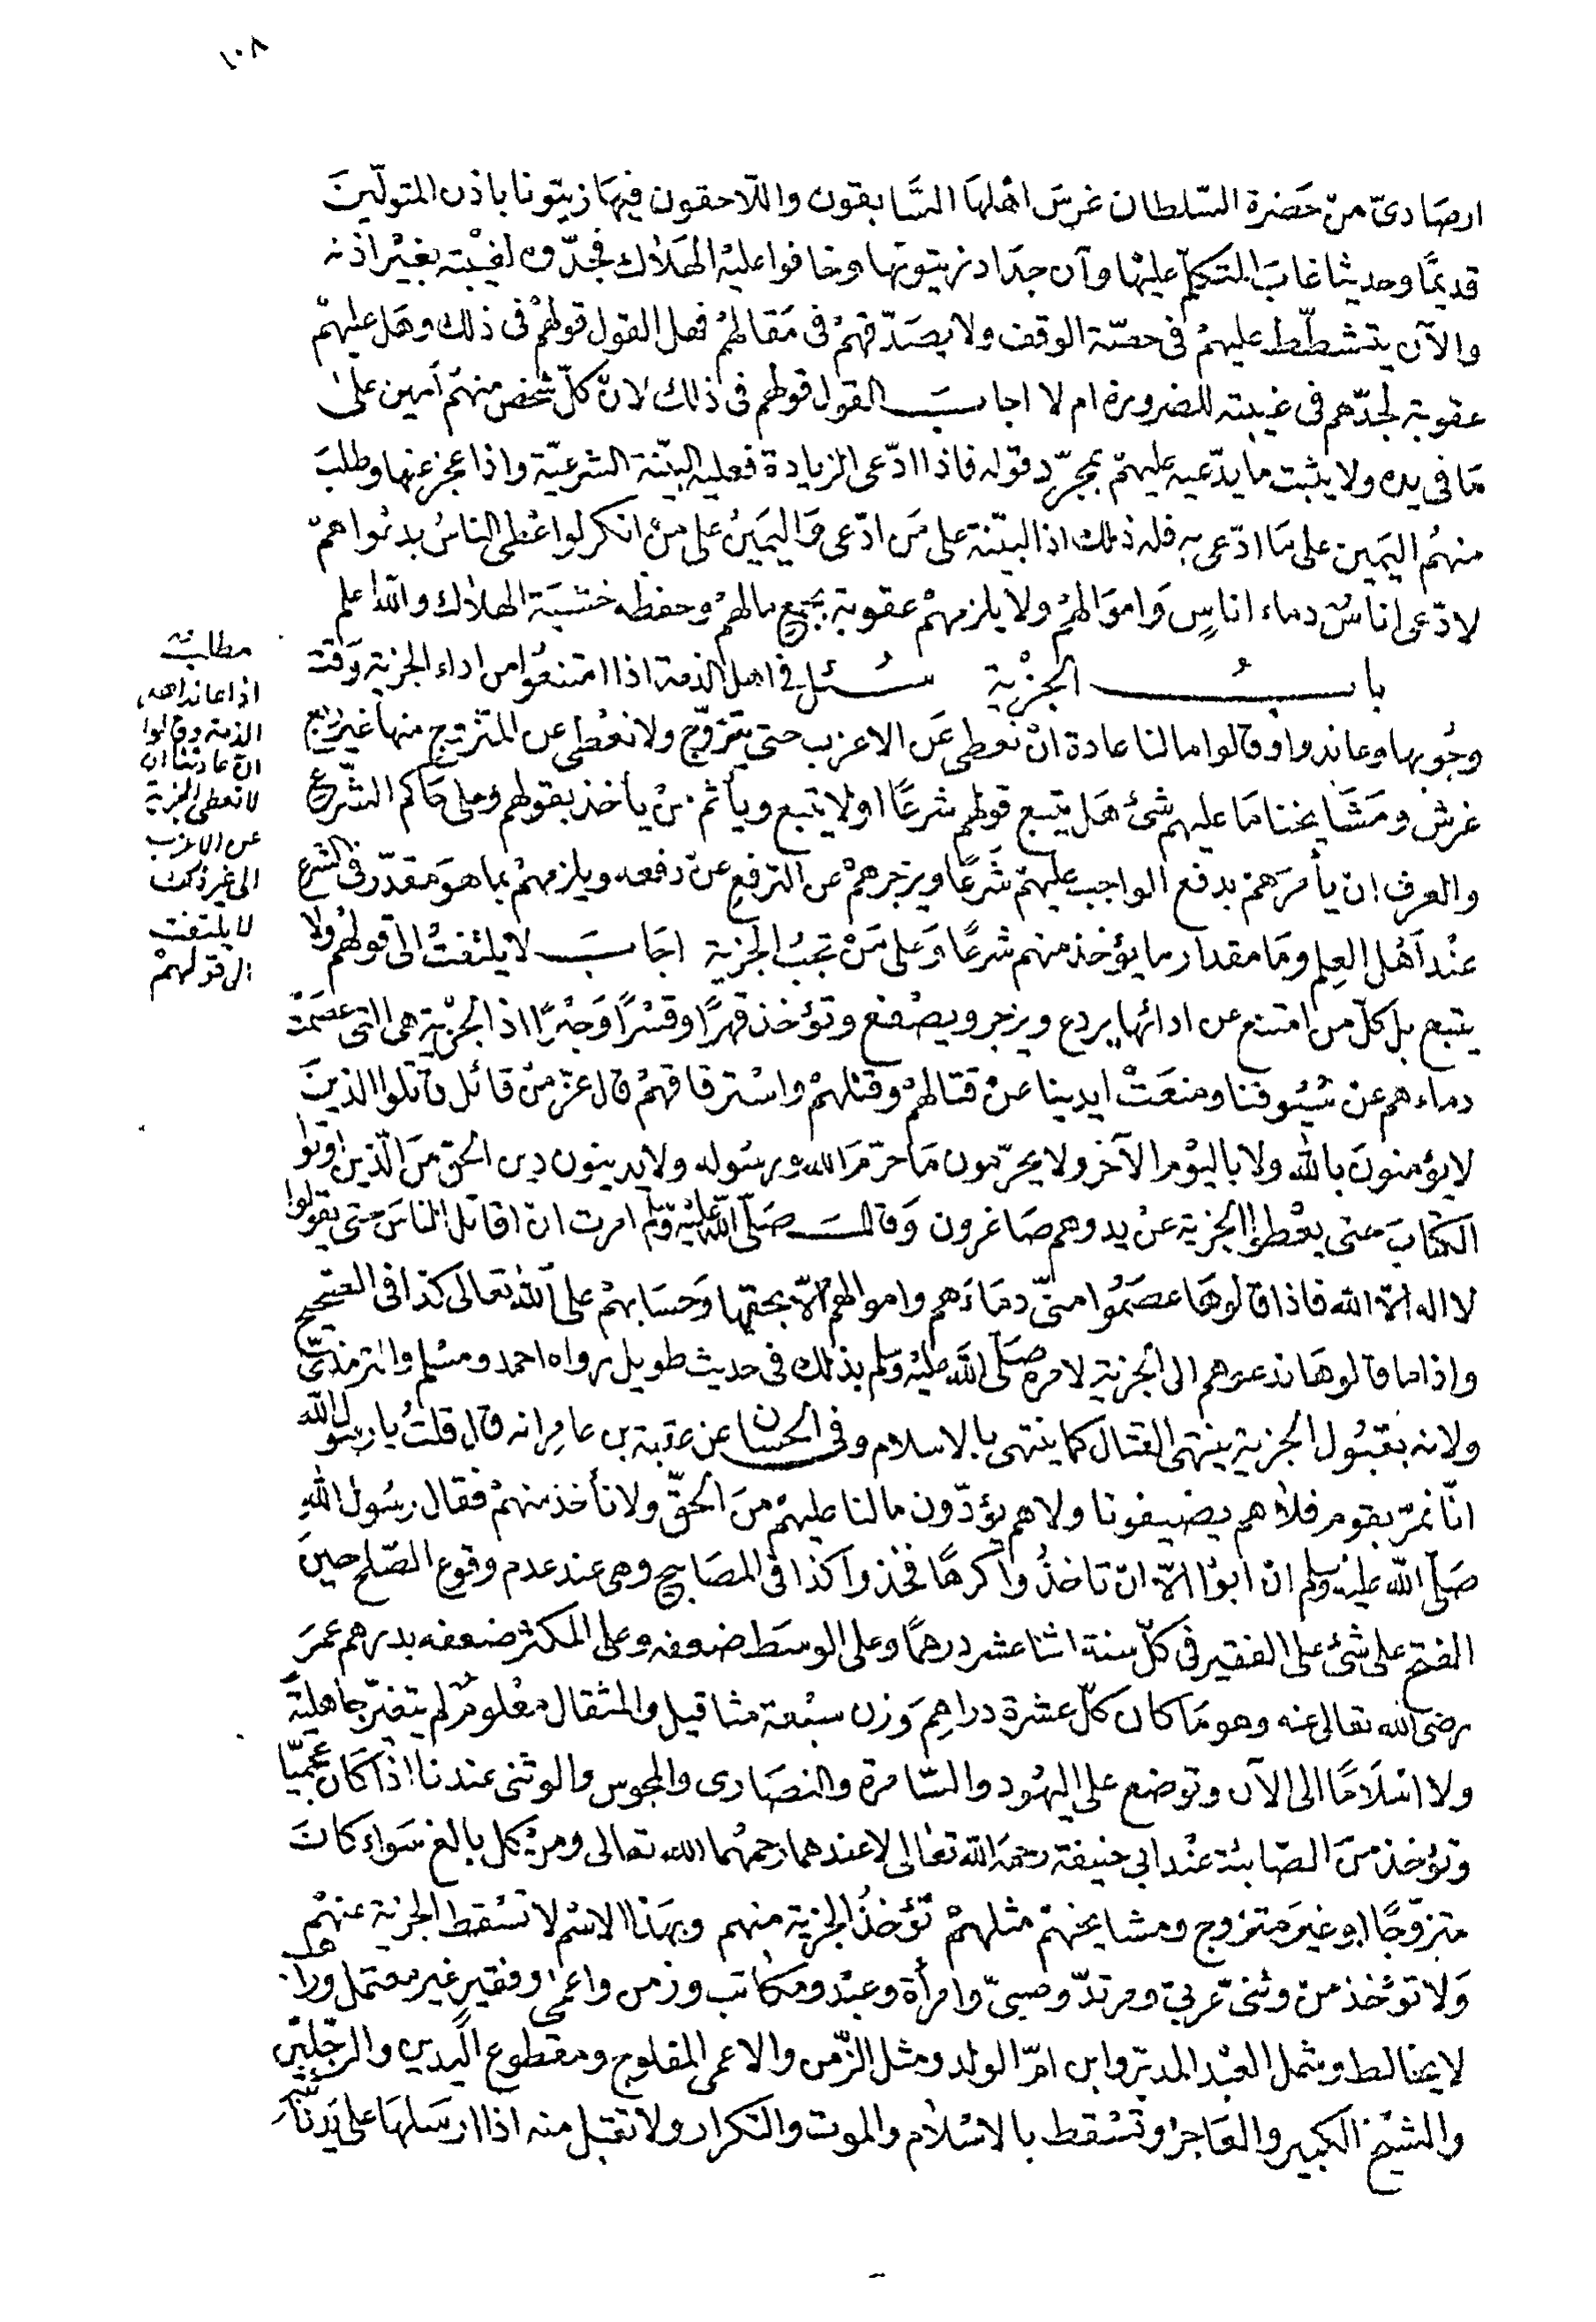 ١٠٨
ارصادىّ من حَضرة السّلطان غرسَ اهْلهَا السَّابقون واللّاحقون فيهَا زيتونا باذن المتولّينَ
قديمًا وحديثا غابَ المتكلّم عليهْا وآن جدَاد زيتونها وخافوا عليْه الهَلاك فجدّوه لغيْبته بغيْر اذنه
والآن يتشطّط عليهمْ فى حصّة الوقف ولا يصَدّقهمْ فى مَقالهمْ فهل القول قولهمْ فى ذلك وهَل عليهمْ
عقوبة لجدّهم فى غيبته للضرورة ام لا اجابَ القول قولهم فى ذلك لانّ كلّ شخص منهم أمين على
مَا فى يده ولا يثبت ما يدّعيه عليهمْ بمجرّد قوله فاذا ادّعى الزيادة فعليه البيّنة الشرعيّة واذا عجز عنها وطلبَ
منهمُ اليَمين على مَا ادّعى به فله ذلك اذ البيّنة على مَن ادّعى وَاليَمينُ على منْ انكر لو اعْطى الناسُ بدعْواهمْ
لادّعى اناسٌ دماء اناسٍ وَاموَالهمْ ولا يلزمهمْ عقوبة بجمْع مالهمْ وحفظه خشيَة الهلاك والله اعلم
بابُ الجزْية سُئل فى اهل الذمة اذا امتنعُوا من اداء الجزية وَقت
وجُوبها وعاندوا وقالوا ما لنا عادة انْ نعطى عَن الاعزب حتى يتزوّج ولا نعْطى عن المتزوج منها غير ربع
غرش ومَشَايخنا مَا عليهم شئ هَل يتبع قولهم شرعًا او لا يتبع ويأثم منْ يأخذ بقولهم وعلى حَاكم الشّرع
والعرف ان يأمرَهمْ بدفع الواجب عليهمْ شَرعًا ويزجرهمْ عن الترفعِ عن دفعه ويلزمهمْ بما هوَ مقدّر فى الشرع
عنْد اَهْل العِلم ومَا مقدار ما يؤخذ منهم شرعًا وَعلى مَنْ تجبُ الجزية اجَابَ لا يلتفتُ الى قولهمْ ولا
يتبع بل كلّ من امتنع عن ادائها يردع ويزجر ويصْفع وتؤخذ قهرًا وقسْرًا وَجبْرًا اذ الجزْية هى التى عصَمَتْ
دماءهم عنْ سُيُوفنا ومنعَتْ ايدينا عنْ قتالهمْ وقتلهمْ واسْترقاقهمْ قال عزّ منْ قائل قاتلوا الذينَ
لا يؤمنونَ بالله ولا باليوْم الآخر ولا يحرّمون مَا حرّمَ الله ورسُوله ولا يدينون دين الحق منَ الّذين اوتوا
الكتابَ حتى يعْطوا الجزية عنْ يد وهم صَاغرون وَقالَ صَلّى اللّه عليْه وسلّم امرت انْ اقاتل الناسَ حتى يقولوا
لا اله الاّ الله فاذا قالوهَا عصَمُوا منّى دمَاءَهم واموالهم الاّ بحقهَا وَحسَابهمْ على اللّه تعالى كذا فى الصّحيح
واذا ما قالوهَا ندعوهم الى الجزية لامره صَلّى اللّه عليْه وسلم بذلك فى حديث طويل رواه احمد ومسْلم والترمذىّ
ولانه بقبُول الجزية ينتهى القتال كما ينتهى بالاسلام وفى الحسَان عن عقبة بن عامِر انه قال قلتُ يا رسُول الله
انّا نمرّ بقوم فلا هم يضيفونا ولا هم يؤدّون ما لنا عليهمْ منَ الحقّ ولا نأخذ منهمْ فقال رسُول اللهِ
صَلّى اللّه عليْه وسلم انْ ابوْا الاّ انْ تاخذُوا كرهًا فخذوا كذا فى المصَابيح وهى عند عدم وقوع الصّلح حينَ
الفتح على شئ على الفقير فى كلّ سنة اثنا عشر درهمًا وعلى الوسَط ضعفه وعلى المكثر ضعفه بدرهم عمرَ
رضى الله تعالى عنه وهو مَا كان كلّ عشرة دراهِمَ وَزن سبْعة مثاقيل والمثقال معْلومٌ لم يتغيّر جاهليّةً
ولا اسْلَامًا الى الآن وتوضع على اليهُود والسّامرة والنصَارى والمجوس والوثنى عندنا اذا كَان عجَميًّا
وتؤخذ منَ الصّابئة عنْد ابى حنيفة رحمَه اللّه تعَالى لا عندهما رحمهُما الله تعالى ومنْ كل بالغ سَواء كانَ
متزوّجًا او غيرَ متزوج ومشايخهمْ مثلهمْ تؤخذُ الجزية منهم وبهَذا الاسْم لا تسْقط الجزية عنهمْ
وَلا توْخذ منْ وثنىّ عَربىّ ومرتدّ وصبىّ وامرأة وعبْد ومكاتب وزمن واعمى وفقير غير معتمل وراهب
لا يخالط وشمل العبْد المدبّر وابن امّ الولد ومثل الزّمن والاعمى المفلوج ومقطوع اليدين والرّجليْن
والشيْخ الكبير والعَاجز وتسْقط بالاسْلام والموت والتكرار ولا تقبل منه اذا ارسَلهَا على يَد
مطلبْ
اذا عاند اهل
الذمة وقالوا
ان عادتنا ان
لا نعطى الجزية
عن الاعزب
الى غير ذلك
لا يلتفت
الى قولهمْ